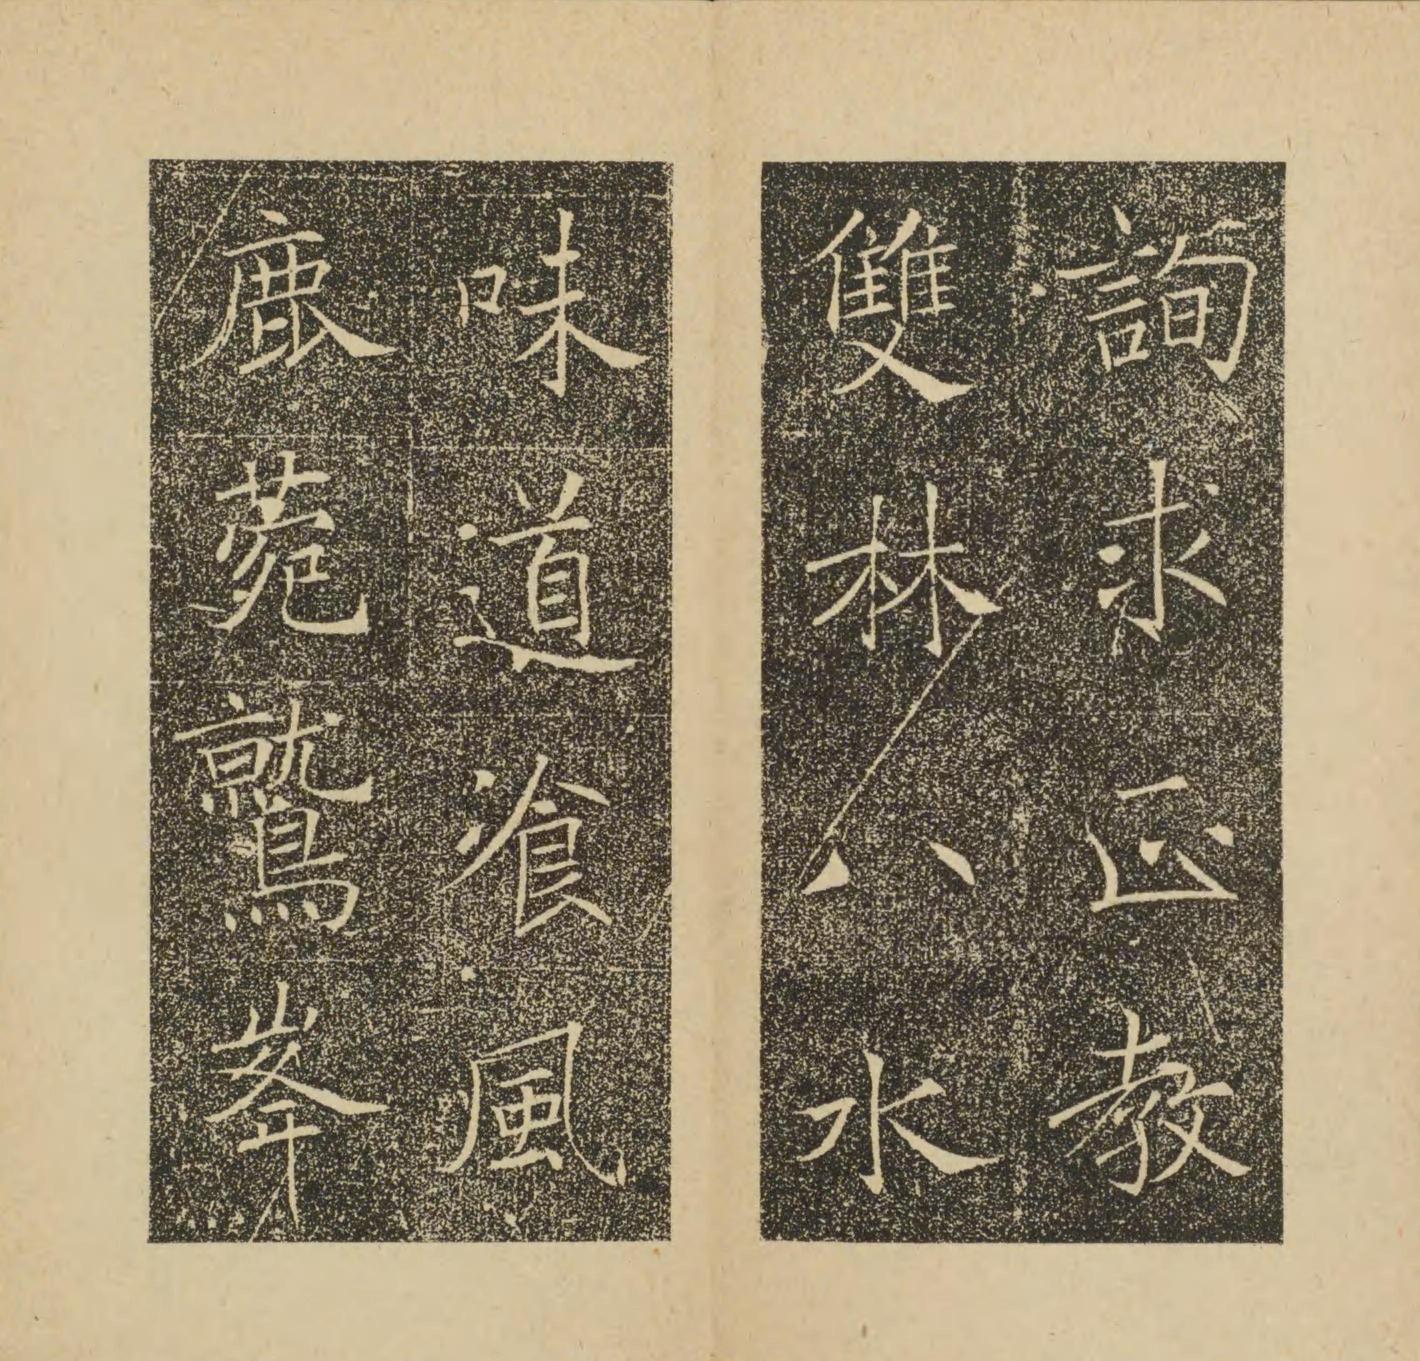 詢求正教
雙林八水
味道飡風
鹿菀鷲峯